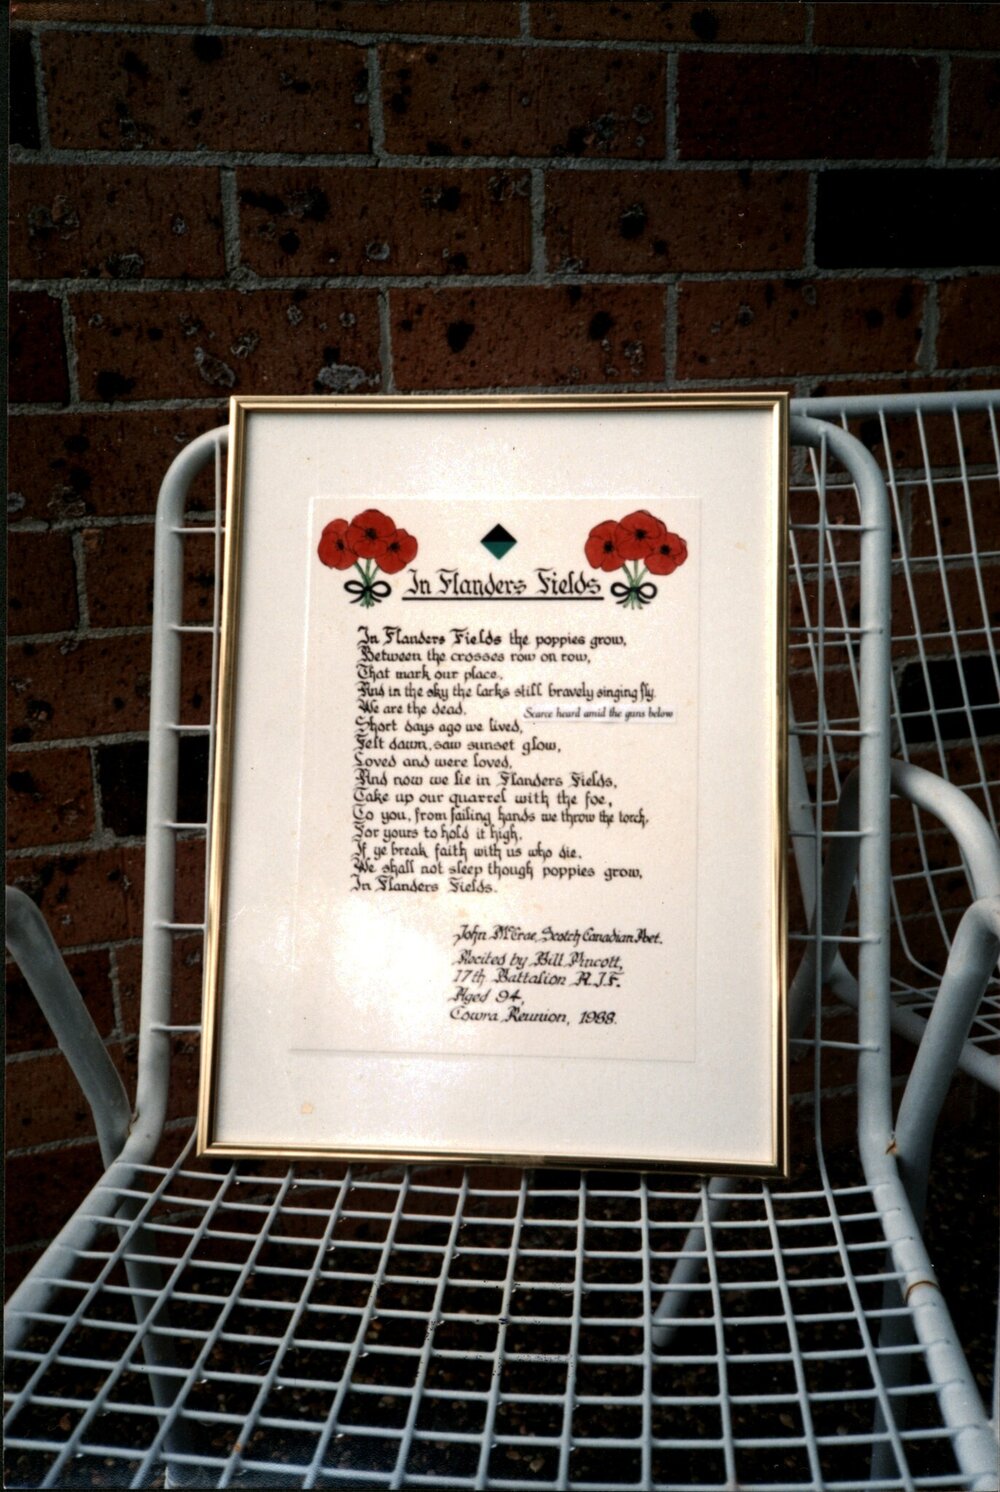 In Flanders Fields
In Flanders Fields the poppies grow,
Between the crosses row on row,
That mark our place,
And in the sky the larks still bravely singing fly.
Scarce heard amid the guns below
We are the dead.
Short days ago we lived,
Felt dawn, saw sunset glow,
Loved and were loved,
And now we lie in Flanders Fields,
Take up our quarrel with the foe,
To you, from failing hands we throw the torch,
For yours to hold it high,
If ye break faith with us who die,
We shall not sleep though poppies grow,
In Flanders Fields.
John McCrae, Scotch Canadian Poet.
Recited by Bill Pincott,
17th Battalion A.I.F.
Aged 94,
Cowra Reunion, 1988.